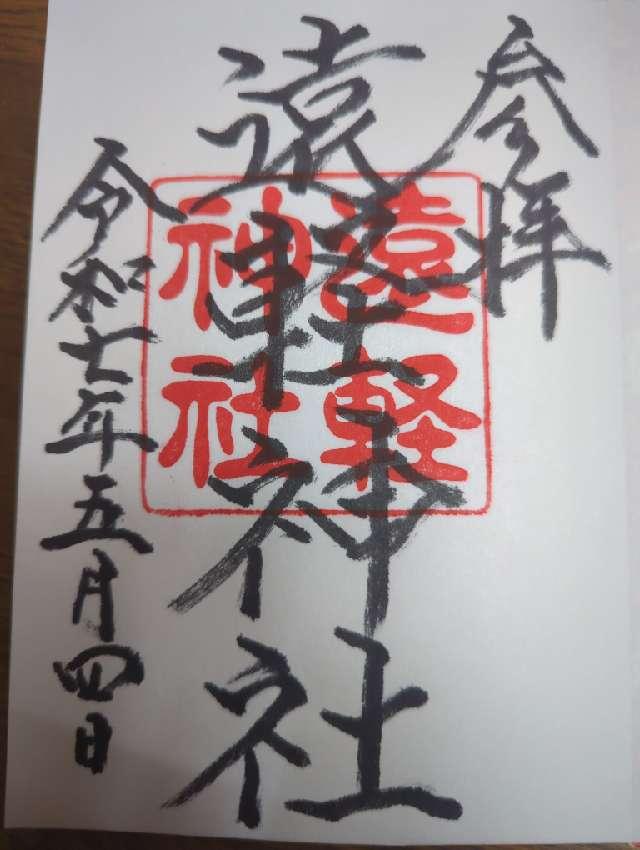 参拝
遠軽神社
遠軽
神社
令和七年五月四日